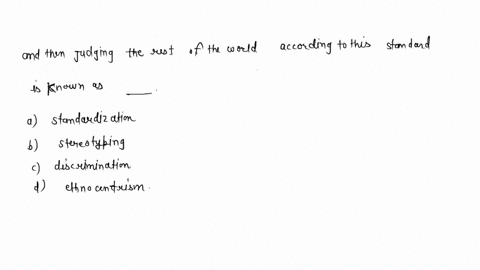 and then judging the rest of the world according to this standard
is known as ____.
a) standardization
b) stereotyping
c) discrimination
d) ethnocentrism.